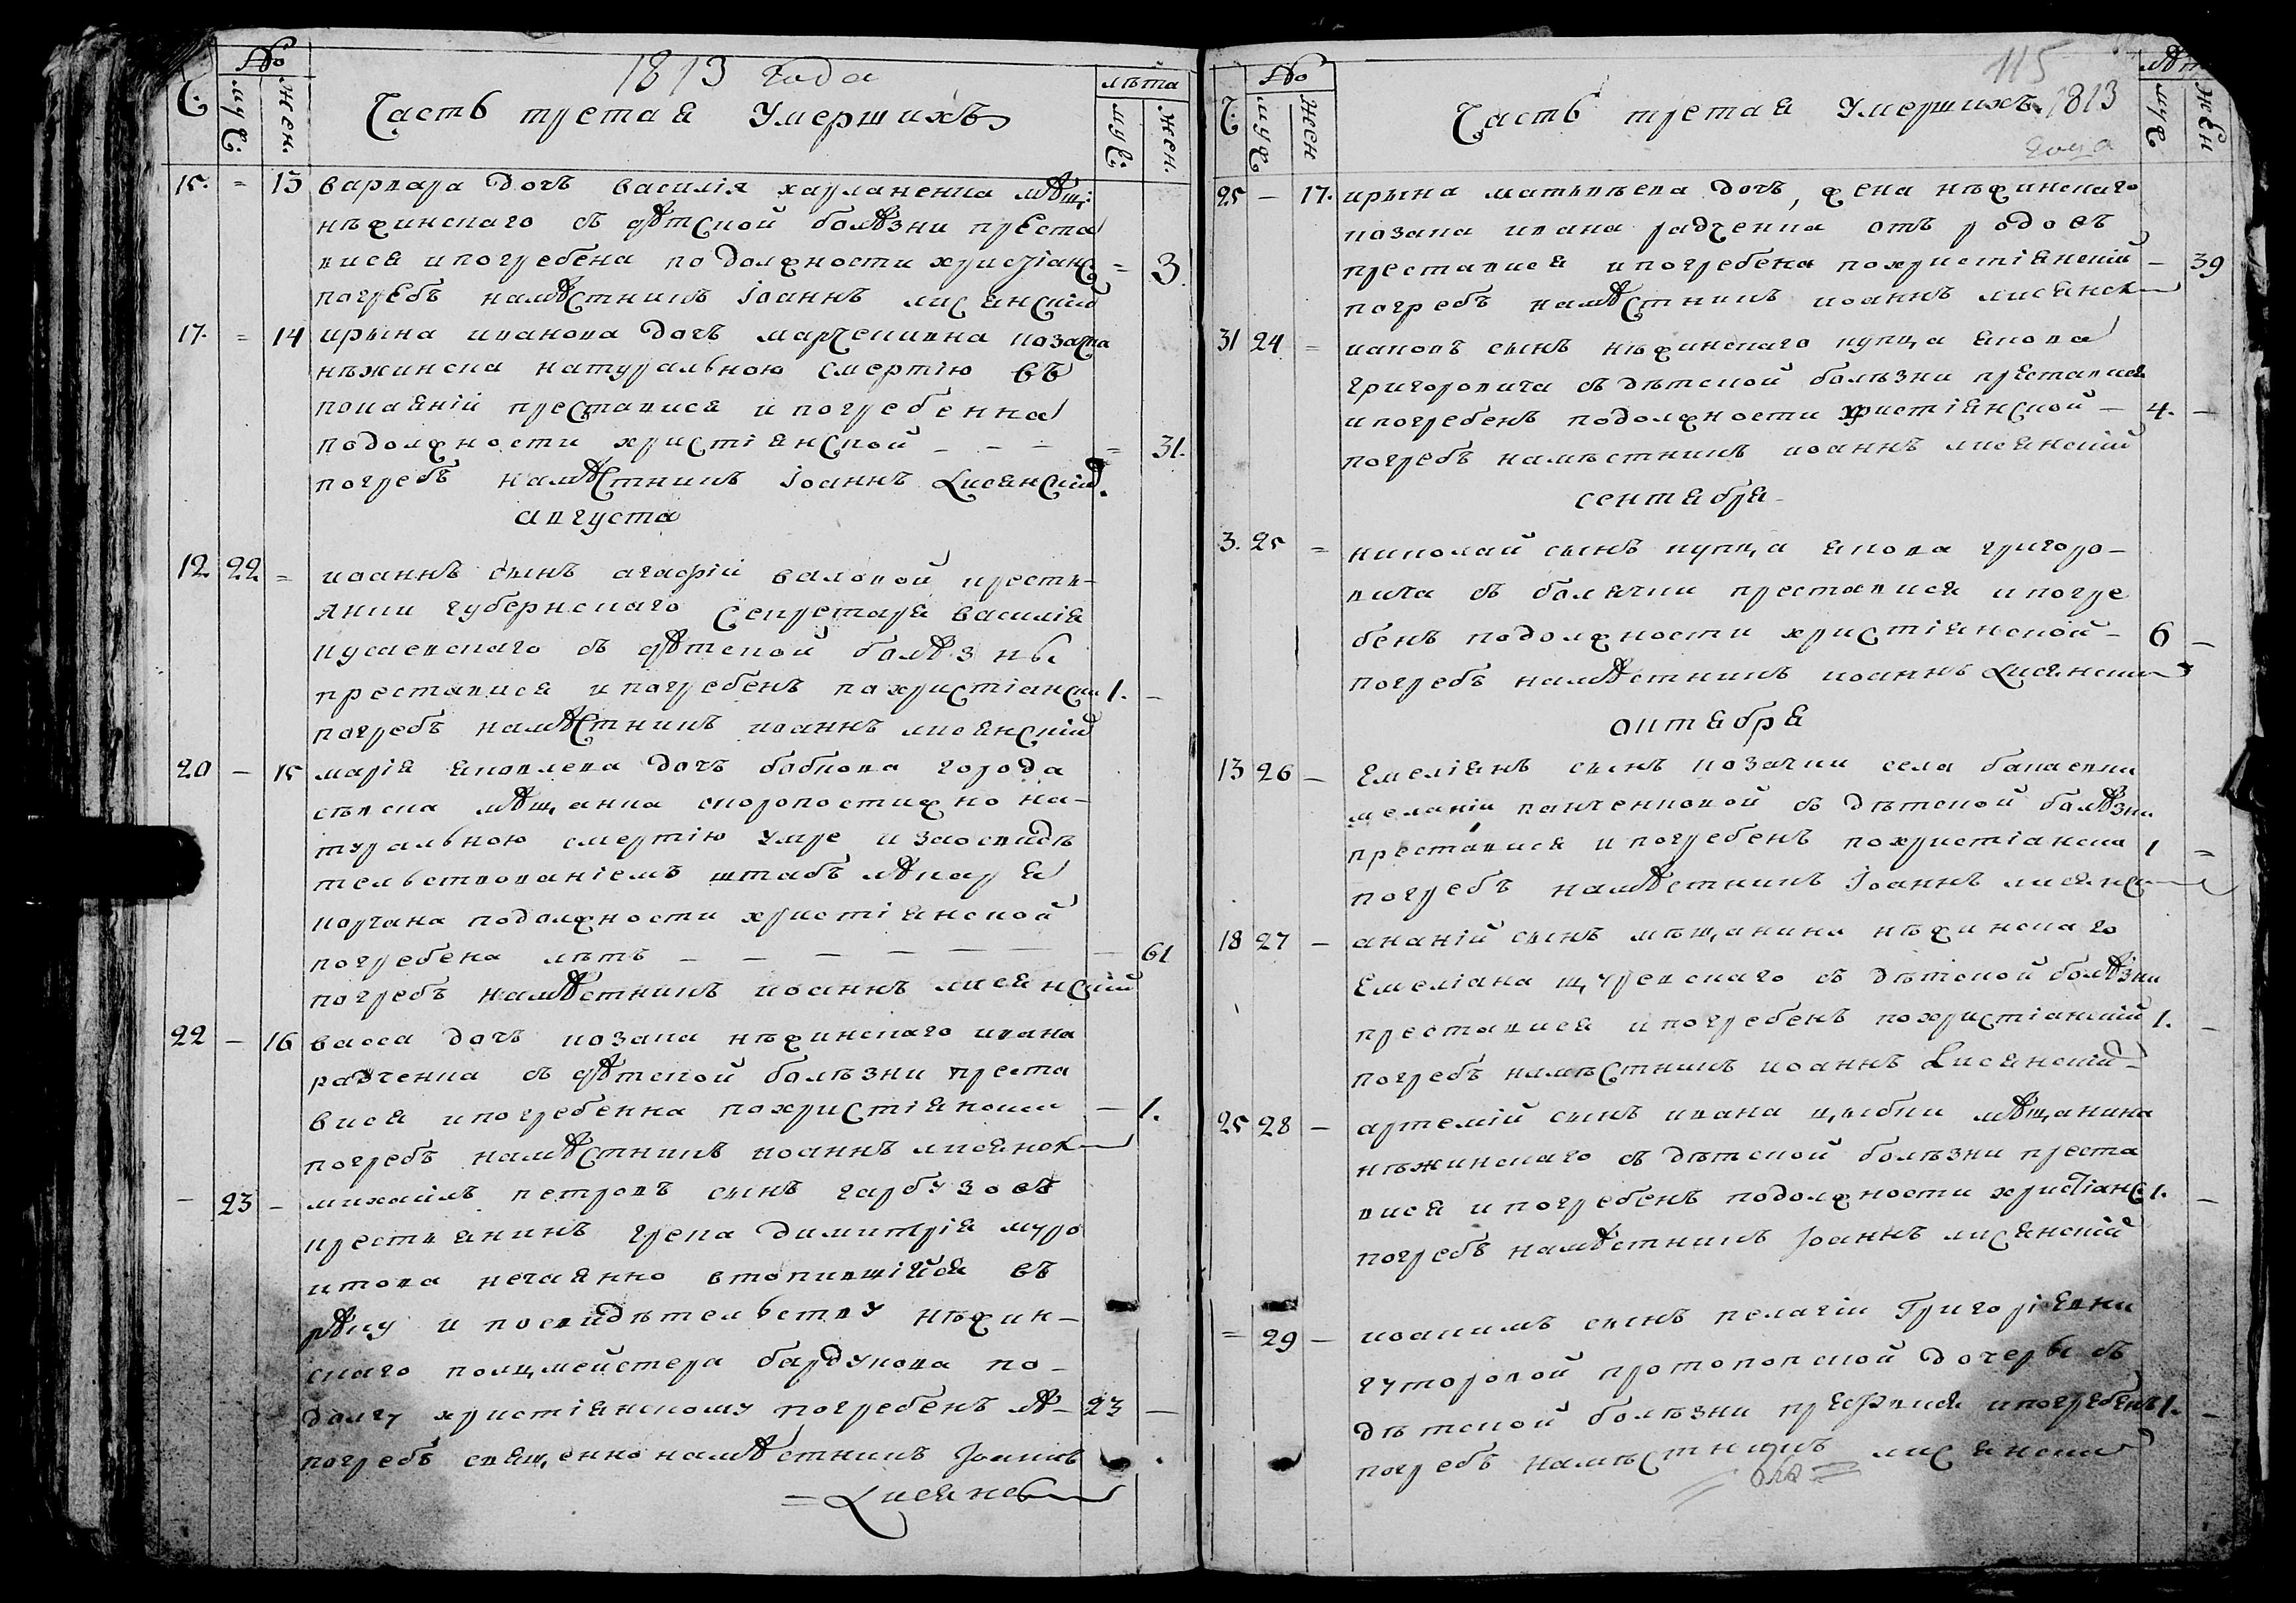 1813 года
Часть третая Умершихъ
Ч: № муч: жен. лѣта муч: жен.
15. = 13 варвара дочь василія харланенка мѣщ:
нѣжинскаго съ дѣтской болѣзни преста
вися и погребена по должности христіанс = 3.
погребъ намѣстникъ Іоаннъ лисянский
17. = 14 ирына иванова дочь марченкивна козачка
нѣжинска натуральною смертію въ
покаяній преставися и погребенна
подолжности христіянской - - - = 31.
погребъ намѣстникъ Іоаннъ Лисянский.
августа
12 22 = иоаннъ сынъ агафій валовой кресть-
янки губернскаго Секретаря василія
кусаевскаго съ дѣтской болѣзны
преставися и погребенъ похристіански 1. -
погребъ намѣстникъ иоаннъ лисянский
20 - 15 марія яковлева дочь бобкова города
сѣвска мѣщанка скоропостижно на-
туральною смертію умре и заосвидѣ
тельствованіемъ штабъ лѣкаря
корчана подолжности христіянской
погребена лѣтъ - - - - - - 61
погребъ намѣстникъ иоаннъ лисянский
22 - 16 васса дочь козака нѣжинскаго ивана
радченка съ дѣтской болѣзни преста
вися и погребенна похристіянски - 1.
погребъ намѣстникъ иоаннъ лисянск
- 23 - михаилъ петровъ сынъ гарбузовъ
крестьянинъ грека димитрія муро
итова нечаянно втопившійся въ
рѣку и посвидѣтельству нѣжин-
скаго полицмейстера бардукова по-
долгу христіянскому погребенъ лѣ- 23 -
погребъ священнонамѣстникъ Іоаннъ
= Лисянск
115
Часть третая Умершихъ 1813
года
Ч: № муч жен лѣт муч жен
25 - 17. ирына матвѣева дочь, жена нѣжинскаго
козака ивана радченка отъ родовъ
преставися и погребена похристіянский - 39
погребъ намѣстникъ иоаннъ лисянск
31 24 = иаковъ сынъ нѣжинскаго купца якова
григоровича съ дѣтской болѣзни преставися
и погребенъ подолжности христіянской - 4. -
погребъ намѣстникъ иоаннъ лисянский
сентября
3. 25 = николай сынъ купца якова григоро-
вича съ болячки преставися и погре
бенъ подолжности христіянской - 6 -
погребъ намѣстникъ иоаннъ Лисянски
октября
13 26 - Емеліянъ сынъ козачки села бакаевки
меланіи панченковой съ дѣтской болѣзни
преставися и погребенъ похристіанска 1 =
погребъ намѣстникъ Іоаннъ лисянс
18 27 - ананій сынъ мѣщанина нѣжинскаго
Емеліана щуревскаго съ дѣтской болѣзни
преставися и погребенъ похристіанский 1. -
погребъ намѣстникъ иоаннъ Лисянский
25 28 - артемій сынъ ивана цыбки мѣщанина
нѣжинскаго съ дѣтской болѣзни преста
вися и погребенъ подолжности христіанс 1. -
погребъ намѣстникъ Іоаннъ лисянский
= 29 - иоакимъ сынъ пелагіи Григоріевни
гуторовой протопопской дочеры съ
дѣтской болѣзни преставися и погребенъ 1. -
погребъ намѣстникъ лисянски